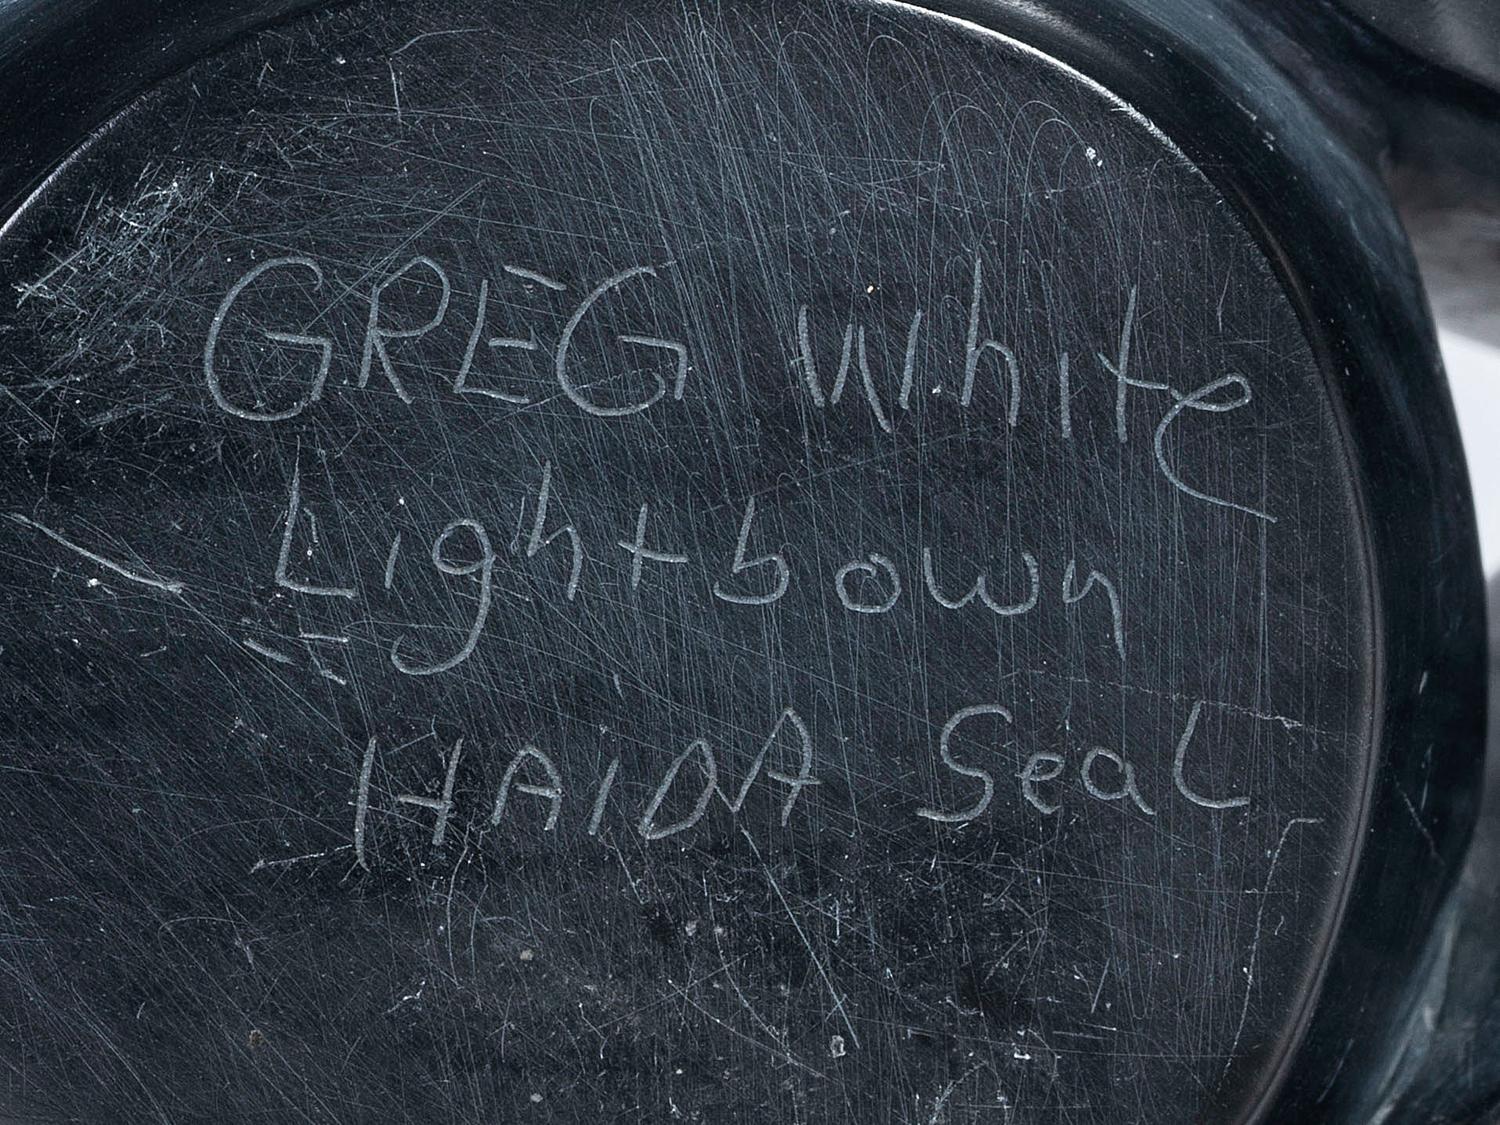 GREG White
Lightbown
HAIDA Seal